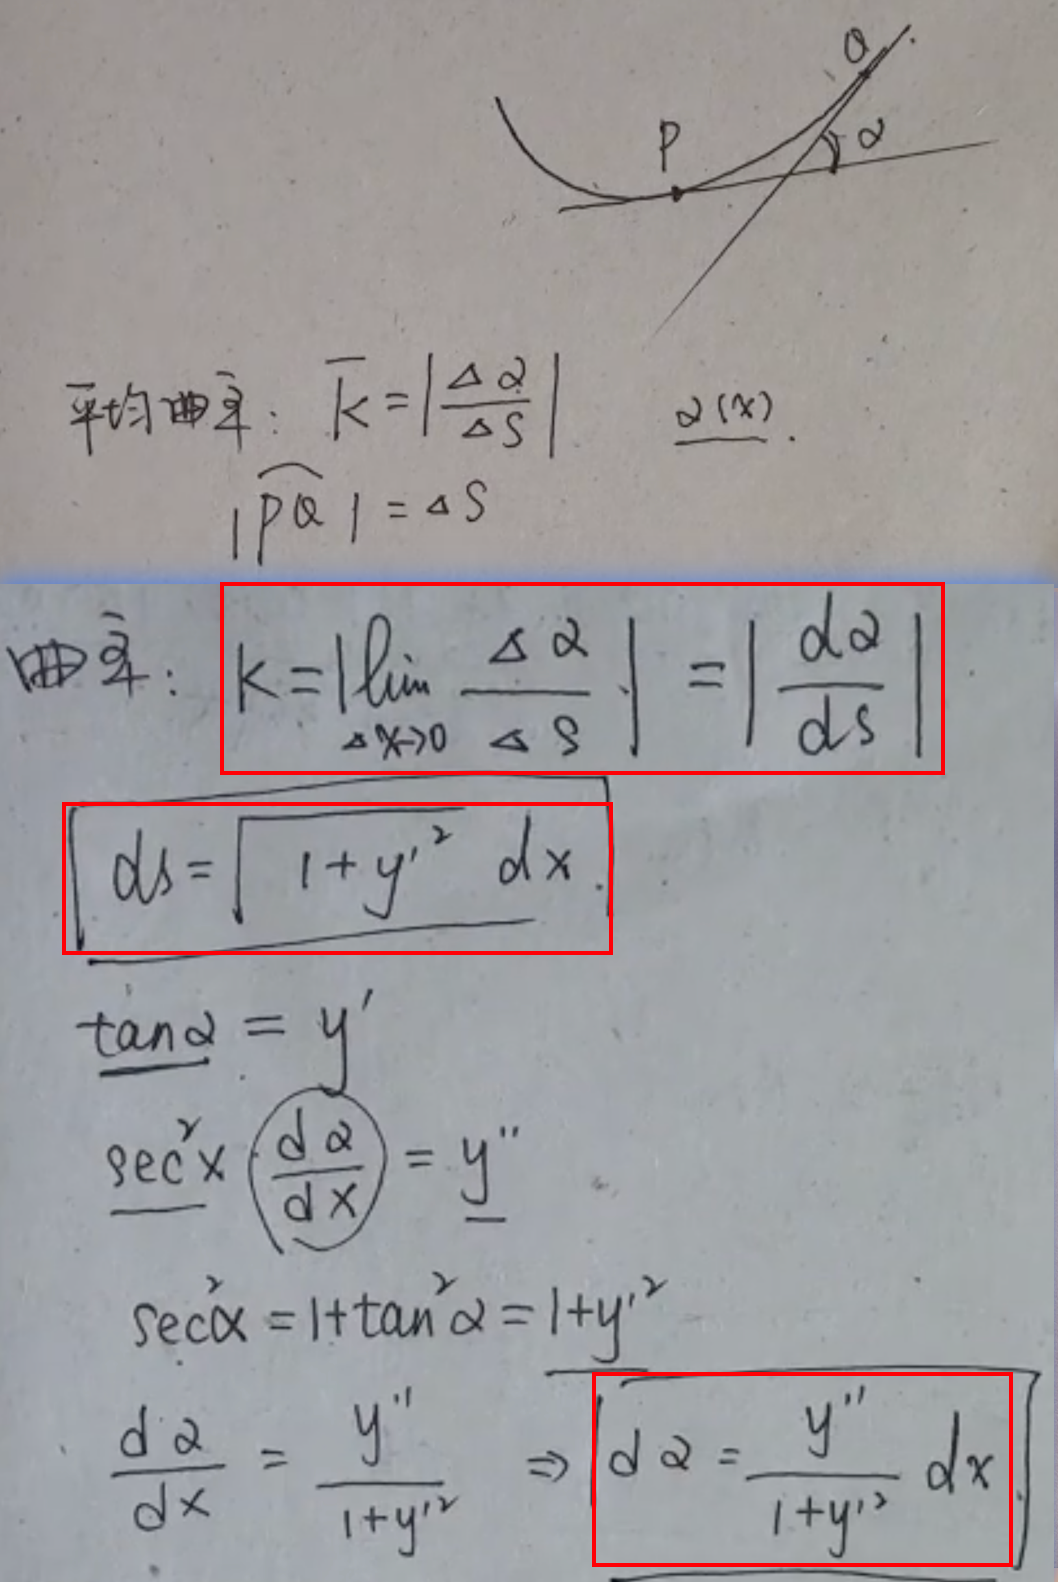 Q
P
α
平均曲率: K̄ = |Δα/ΔS| α(x).
|P͡Q| = ΔS
曲率: K = |lim Δx→0 Δα/ΔS| = |dα/ds|
ds = √(1+y'²) dx.
tanα = y'
sec²x dα/dx = y''
sec²α = 1+tan²α = 1+y'²
dα/dx = y''/(1+y'²) ⇒ dα = y''/(1+y'²) dx